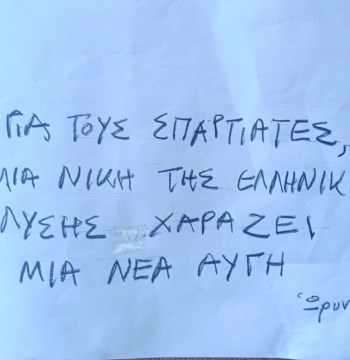 ΓΙΑ ΤΟΥΣ ΣΠΑΡΤΙΑΤΕΣ,
ΜΙΑ ΝΙΚΗ ΤΗΣ ΕΛΛΗΝΙΚ
ΛΥΣΗΣ ΧΑΡΑΖΕΙ
ΜΙΑ ΝΕΑ ΑΥΓΗ